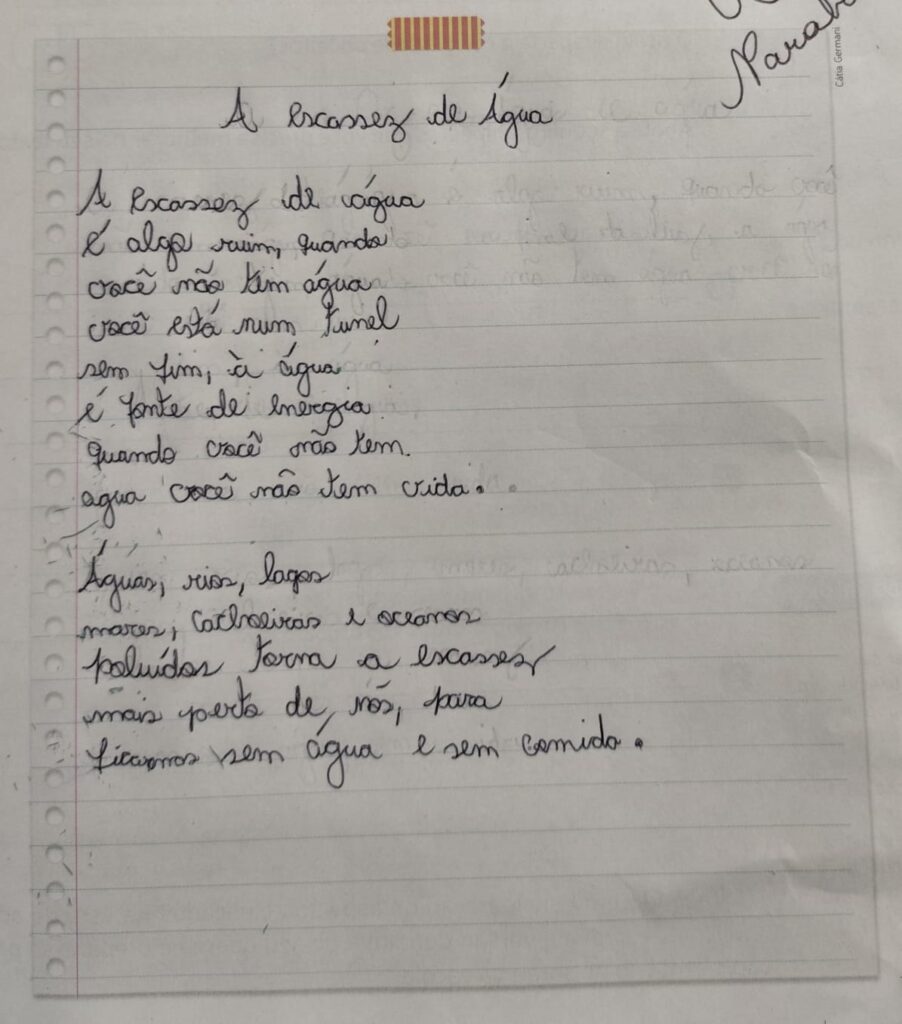 Cátia Germani
A escassez de Água
A escassez de água
é algo ruim, quando
você não tem água
você está num tunel
sem fim, à água
é fonte de energia
quando você não tem.
agua você não tem vida.
Águas, rios, lagos
mares, cachoeiras e oceanos
poluídos torna a escassez
mais perto de, nós, para
ficarmos sem água e sem comida.